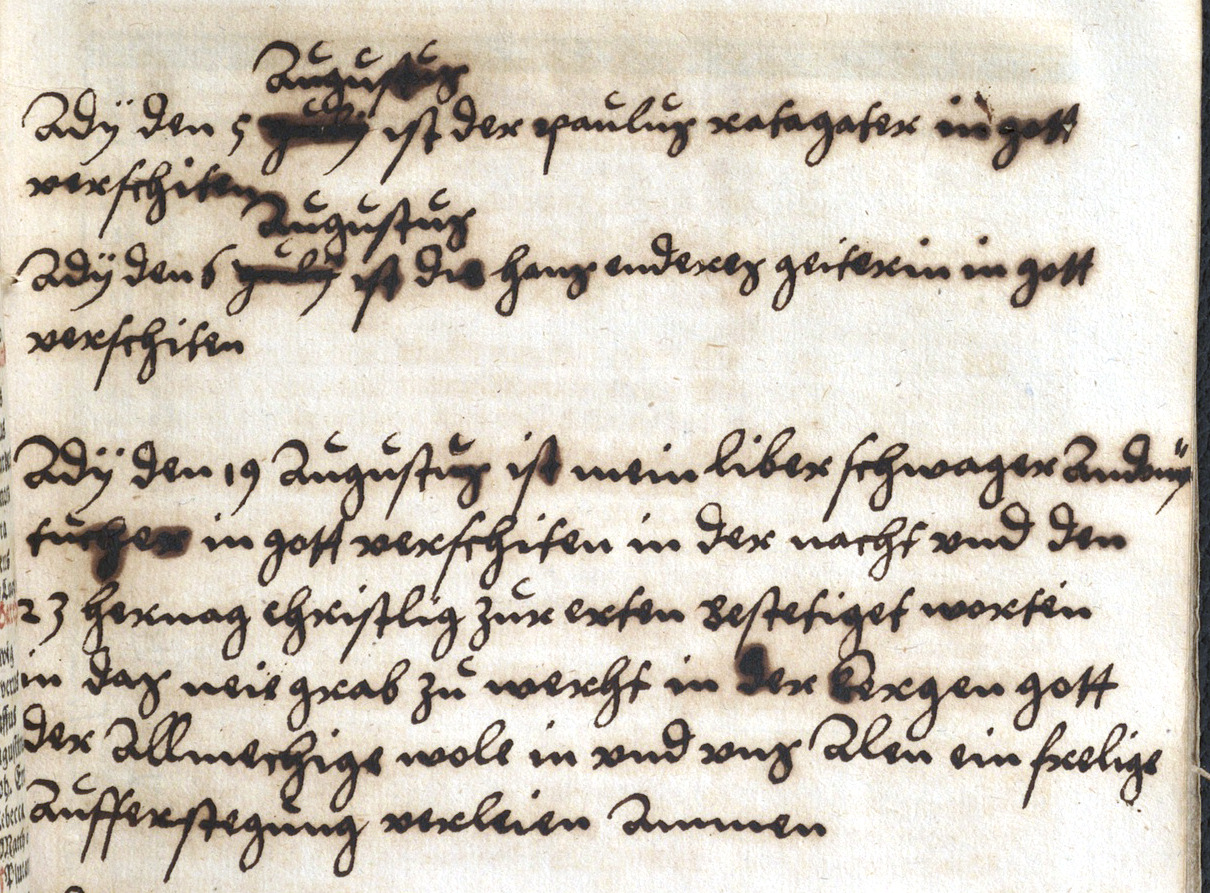 Augustus
Adÿ den 5 ist der paulus ratagater in gott
verschiten
Augustus
Adÿ den 6 ist die hans enderes geiterin in gott
verschiten
Adÿ den 19 Augustus ist mein liber schwager Andonÿ
tucher in gott verschiten in der nacht vnd den
23 hernag christlig zur erten bestetiget worten
in das neie grab zu werht in der kergen gott
der Allmechige wole in vnd vns Alen ein frelige
Aufferstegung verleien Ammen